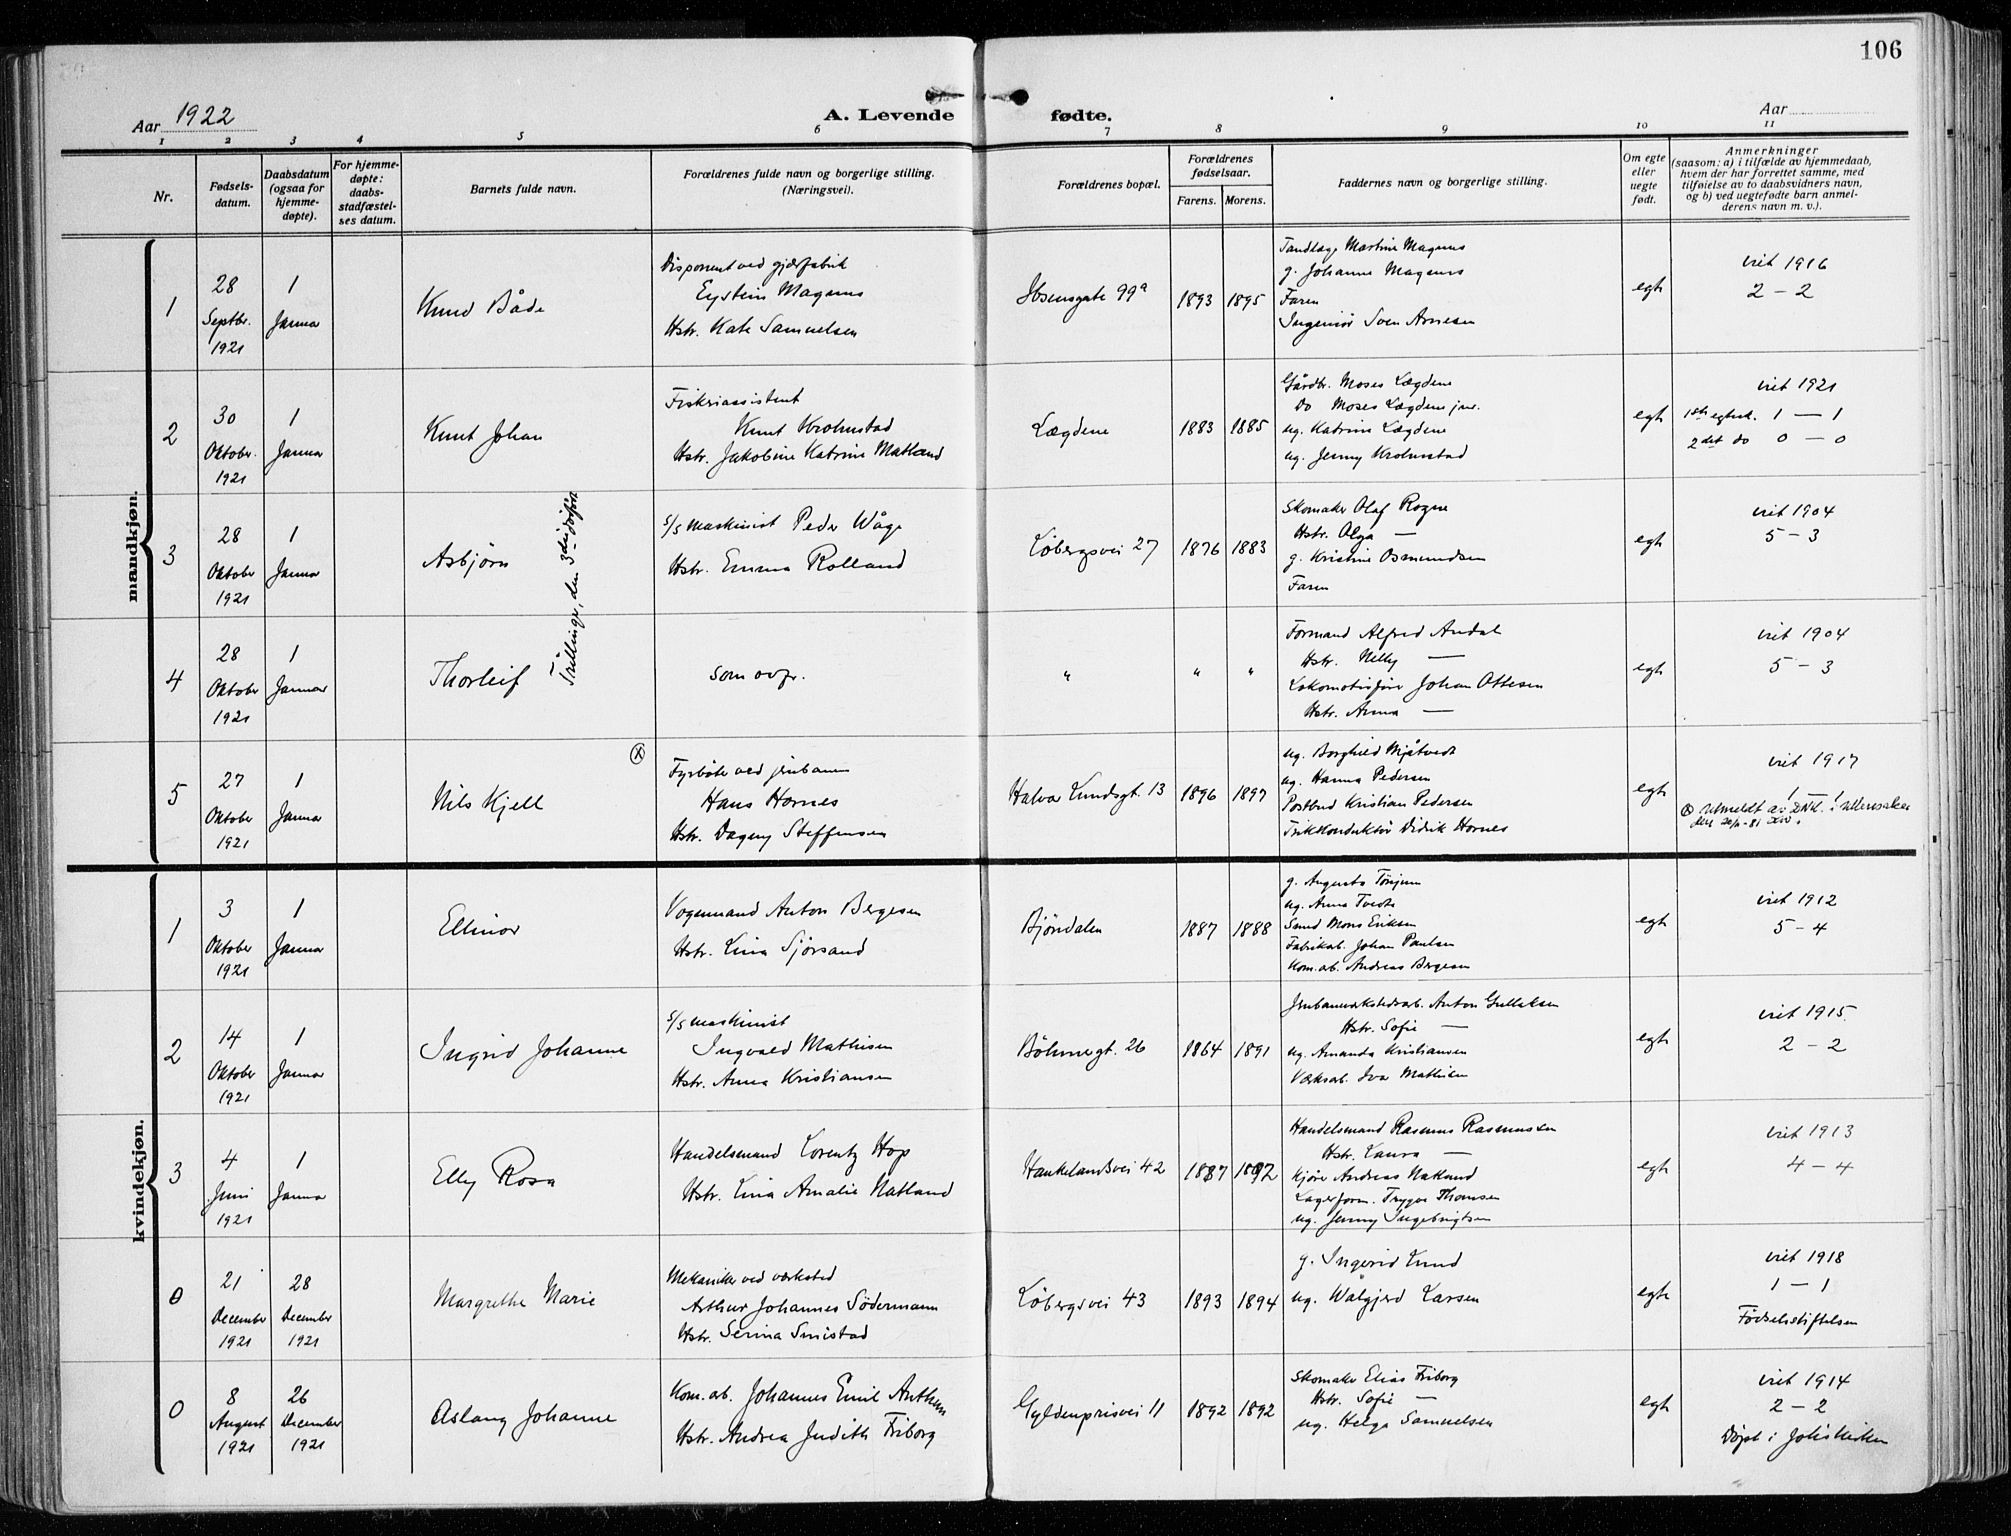 106
Aar 1922
A. Levende fødte.
Aar
1 2 3 4 5 6 7 8 9 10 11
Nr.
Fødsels-
datum.
Daabsdatum
(ogsaa for
hjemme-
døpte).
For hjemme-
døpte:
daabs-
stadfæstel-
ses datum.
Barnets fulde navn.
Forældrenes fulde navn og borgerlige stilling.
(Næringsvei).
Forældrenes bopæl.
Forældrenes
fødselsaar.
Farens. Morens.
Faddernes navn og borgerlige stilling.
Om egte
eller
uegte
født.
Anmerkninger
(saasom: a) i tilfælde av hjemmedaab,
hvem der har forrettet samme, med
tilføielse av to daabsvidners navn,
og b) ved uegtefødte barn anmel-
derens navn m. v.).
mandkjøn.
1
28
Septbr.
1921
1
Januar
Knud Både
Disponent ved gjærfabrik
Eystein Magnus
Hstr. Kate Samuelsen
Ibsensgate 99a
1893
1895
Tandlæge Martine Magnus
g. Johanne Magnus
Faren
Ingeniør Sven Arnesen
egte
viet 1916
2 - 2
2
30
Oktober.
1921
1
Januar
Knut Johan
Fiskeriassistent
Knut Krohnstad
Hstr. Jakobine Katrine Matland
Lægdene
1883
1885
Gårdbr. Moses Lægdene
Do Moses Lægdene jnr.
ug. Katrine Lægdene
ug. Jenny Krohnstad
egt
viet 1921
1ste egtesk. 1 - 1
2det do 0 - 0
3
28
Oktober
1921
1
Januar
Asbjørn
Trillinger, den 3die dødfødt
s/s maskinist Peder Våge
Hstr. Emma Rolland
Løbergsvei 27
1876
1883
Skomaker Olaf Rogne
Hstr. Olga —
g. Kristine Osmundsen
Faren
egt
viet 1904
5 - 3
4
28
Oktober
1921
1
Januar
Thorleif
som ovfr.
"
"
"
Formand Alfred Andal
Hstr. Nelly —
Lokomotivfører Johan Ottesen
Hstr. Anna —
egt
viet 1904
5 - 3
5
27
Oktober
1921
1
Januar
Nils Kjell
(X)
Fyrbøter ved jernbanen
Hans Hornes
Hstr. Dagny Steffensen
Halvor Lundsgt. 13
1896
1897
ug. Borghild Mjåtvedt
ug. Hanna Pedersen
Postbud Kristian Pedersen
Trikkonduktør Didrik Hornes
egt
viet 1917
1 - 1
(X) Utmeldt av DNK. i Ullensaker
kvindekjøn.
1
3
Oktober
1921
1
Januar
Ellinor
Vognmand Anton Bergesen
Hstr. Lina Sjørsand
Bjöndalen
1887
1888
g. Augusta Tönjum
ug. Anna Tvedt
Smed Mons Eriksen
Fabrikab. Johan Paulsen
Kom.ab. Andreas Bergesen
egt
viet 1912
5 - 4
2
14
Oktober
1921
1
Januar
Ingrid Johanne
s/s maskinist
Ingvald Mathisen
Hstr. Anna Kristiansen
Böhmergt. 26
1864
1891
Jernbaneverkstedsarb. Anton Gullaksen
Hstr. Sofie —
ug. Amanda Kristiansen
Værksarb. Ivar Mathisen
egt
viet 1915.
2 - 2
3
4
Juni
1921
1
Januar
Elly Rosa
Handelsmand Lorentz Hop
Hstr. Lina Amalie Natland
Haukelandsvei 42
1887
1892
Handelsmand Rasmus Rasmussen
Hstr. Laura —
Kjører Andreas Natland
Lagerform. Trygve Thomsen
ug. Jenny Ingebrigtsen
egt
viet 1913
4 - 4
0
21
December
1921
28
December
1921
Margrethe Marie
Mekaniker ved værksted
Arthur Johannes Södermann
Hstr. Serina Smistad
Løbergsvei 43
1893
1894
g. Ingerid Lund
ug. Walgjerd Larsen
egte
viet 1918
1 - 1
Fødselsstiftelsen
0
8
August
1921
26
December
1921
Aslaug Johanne
Kom. arb. Johannes Emil Anthun
Hstr. Andrea Judith Friborg
Gyldenprisvei 11
1892
1892
Skomaker Elias Friborg
Hstr. Sofie —
ug. Helga Samuelsen
egt
viet 1914
2 - 2
Døpt i Johskirken